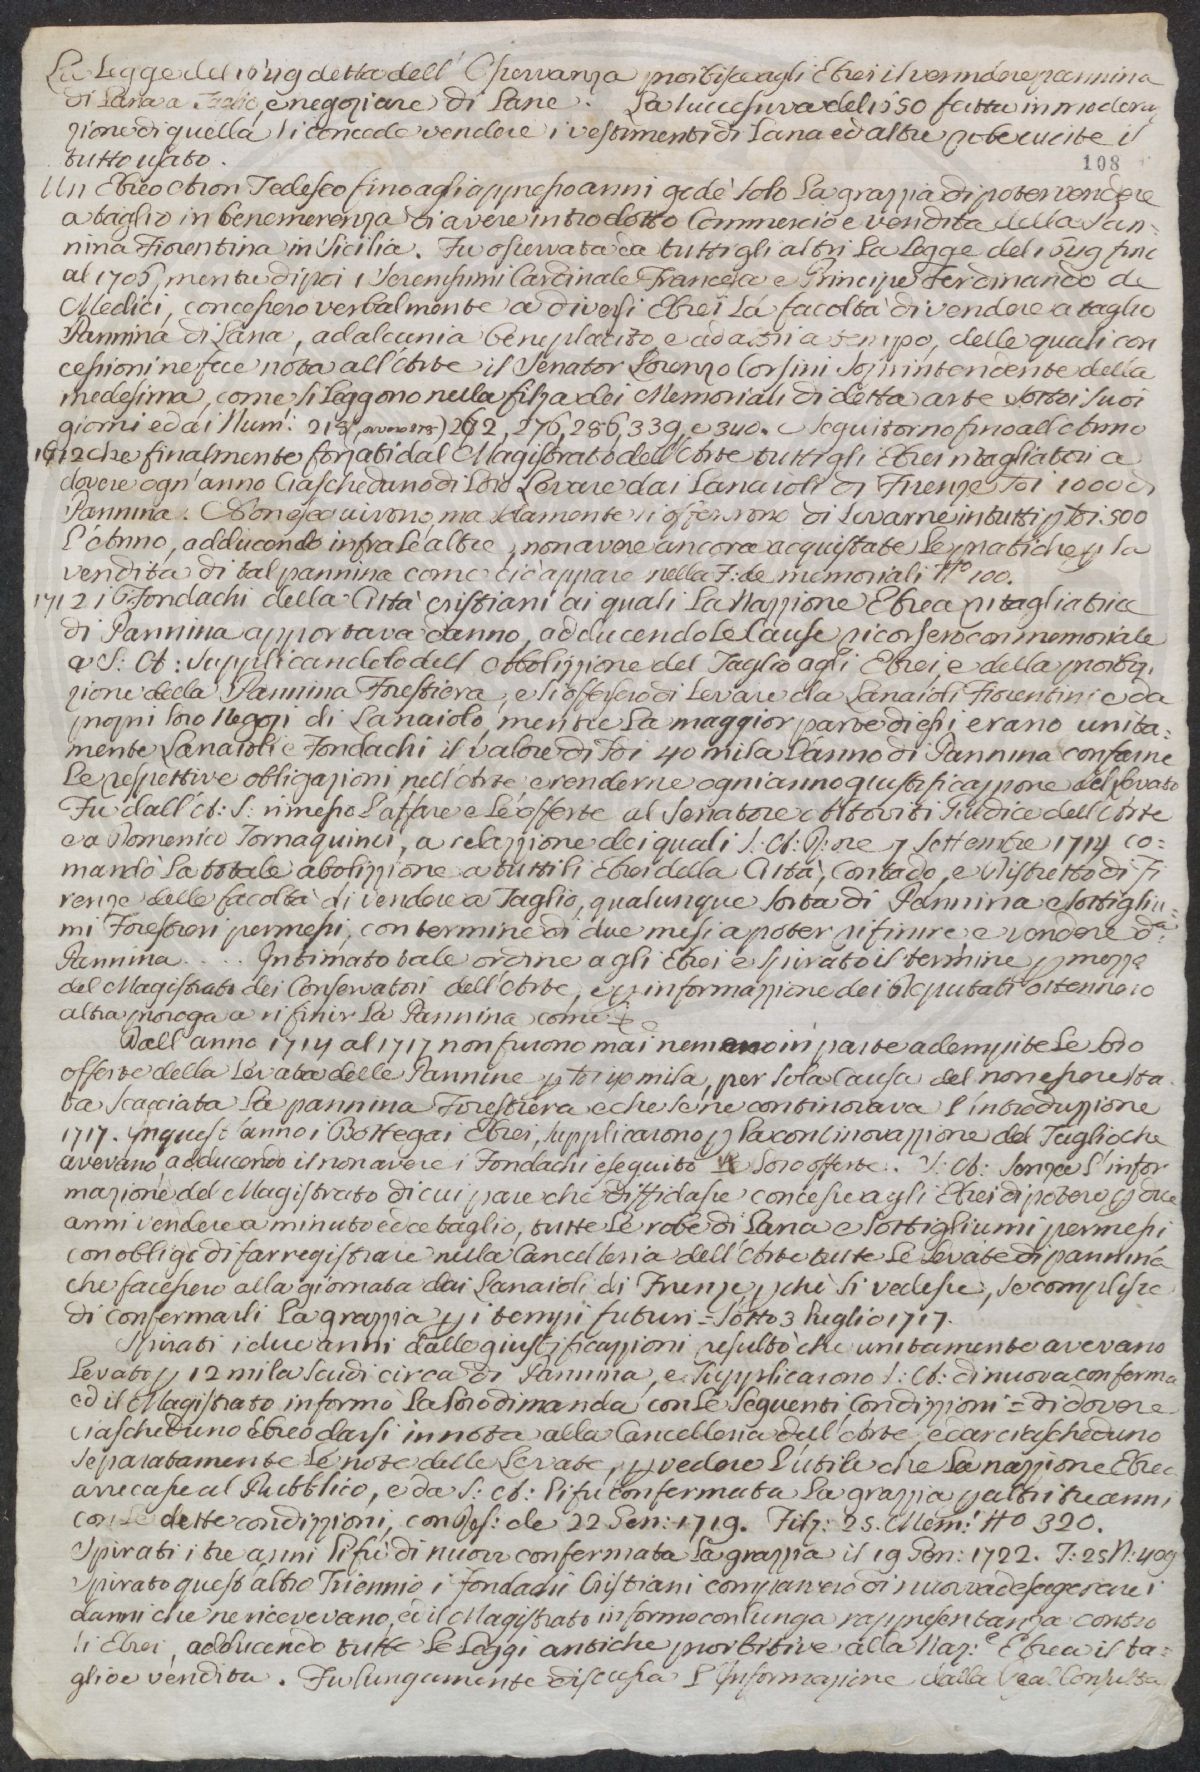 La Legge del 1649 detta dell' Osservanza proibisce agli Ebrei il vendere pannina
di Lana a Taglio, e negoziare di Lane. La successiva del 1650 fatta in modera
zione di quella, li concede vendere i vestimenti di Lana ed altre robe cucite il
tutto usato.
108
Un Ebreo Aron Tedesco fino agli appresso anni godè solo la grazzia di poter vendere
a taglio in benemerenza di avere introdotto Commercio e vendita della Pan=
nina Fiorentina in Sicilia. Fu osservata da tutti gli altri La Legge del 1649 fino
al 1705, mentre dipoi i Serenissimi Cardinale Francesco e Principe Ferdinando de
Medici, concessero verbalmente a diversi Ebrei La facoltà di vendere a taglio
Pannina di Lana, ad alcuni a beneplacito, e ad altri a tempo, delle quali con
cessioni ne fece nota all'Arte il Senator Lorenzo Corsini Soprintendente della
medesima, come si Leggono nella filza dei Memoriali di detta arte sotto i suoi
giorni ed ai Num: 218, 262, 276, 286, 339, e 340. e seguitorno fino all'Anno
1712 che finalmente forzati dal Magistrato dell'Arte tutti gli Ebrei ritagliatori a
dovere ogn'anno Ciascheduno di Loro Levare dai Lanaioli di Firenze 1000 di
Pannina. Non eseguirono, ma solamente si offersono di Levarne in tutti p 500
L'Anno, adducendo infra le altre, non avere ancora acquistate Le pratiche p la
vendita di tal pannina come ciò appare nella F: de memoriali N.o 100.
1712 i Fondachi della Città Cristiani ai quali La Nazzione Ebrea ritagliatrice
di Pannina apportava danno, adducendo le Cause ricorsero con memoriale
a S: A: Supplicandolo dell'Abolizzione del Taglio agli Ebrei, e della proibi
zione della Pannina Forestiera, e si offersero di Levare da Lanaioli Fiorentini e da
proprii loro Negozi di Lanaiolo, mentre La maggior parte di essi erano unita=
mente Lanaioli e Fondachi il valore di 40 mila L'anno di Pannina conforme
Le respettive obligazioni nell'Arte e renderne ogni anno giustificazzione del levato
Fu dall'A: S: rimesso L'affare e Le offerte al Senatore Altoviti Giudice dell'Arte
e a Domenico Tornaquinci, a relazzione dei quali S: A: R: ne 7 Settembre 1714 co=
mandò La totale abolizzione a tutti li Ebrei della Città, Contado, e Distretto di Fi
renze delle facoltà di vendere a Taglio, qualunque sorta di Pannina e sottigliu=
mi Forestieri permessi, con termine di due mesi a poter rifinire e vendere d.a
Pannina .... Intimato tale ordine agli Ebrei e spirato il termine p mezzo
del Magistrato dei Conservatori dell'Arte, e p informazzione dei Deputati ottennero
altra proroga a rifinir La Pannina come
Dall'anno 1714 al 1717 non furono mai nemeno in parte adempite Le loro
offerte della Levata delle Pannine p 40 mila, per sola Causa del non essere sta
ta Scacciata La pannina Forestiera e che se ne continovava L'introduzzione
1717. In quest'anno i Bottegai Ebrei, supplicarono p la continovazzione del Taglio che
avevano, adducendo il non avere i Fondachi eseguito Le Loro offerte. S: A: Senza L'infor
mazione del Magistrato di cui pare che diffidasse concesse agli Ebrei di potere p due
anni vendere a minuto ed a taglio, tutte Le robe di Lana e sottigliumi permessi
con obligo di far registrare nella Cancelleria dell'Arte tutte Le levate di pannina
che facessero alla giornata dai Lanaioli di Firenze, p chè si vedesse, se complisse
di confermarli La grazzia p i tempi futuri = sotto 3 Luglio 1717.
Spirati i due anni dalle giustificazzioni resultò che unitamente avevano
Levato p 12 mila Scudi circa di Pannina, e Supplicarono S: A: di nuova conferma
ed il Magistrato informò La loro dimanda con Le Seguenti Condizzioni = di dovere
ciascheduno Ebreo darsi in nota alla Cancelleria dell'Arte, e dar ciascheduno
separatamente Le note delle Levate, p vedere L'utile che La nazzione Ebrea
arrecasse al Pubblico, e da S: A: li fu confermata La grazzia p altri tre anni
con Le dette condizzioni, con Res: de 22 Gen: 1719. Filz: 25. Mem: N.o 320.
Spirati i tre anni li fù di nuovo confermata La grazzia il 19 Gen: 1722. F: 25 N: 409
Spirato quest'altro Triennio i Fondachi Cristiani comparvero di nuovo ad esagerare i
danni che ne ricevevano, ed il Magistrato informò con lunga rappresentanza contro
li Ebrei, adducendo tutte Le Leggi antiche proibitive alla Naz:e Ebrea il ta=
glio e vendita. Fu lungamente discussa L'Informazione dalla Real Consulta